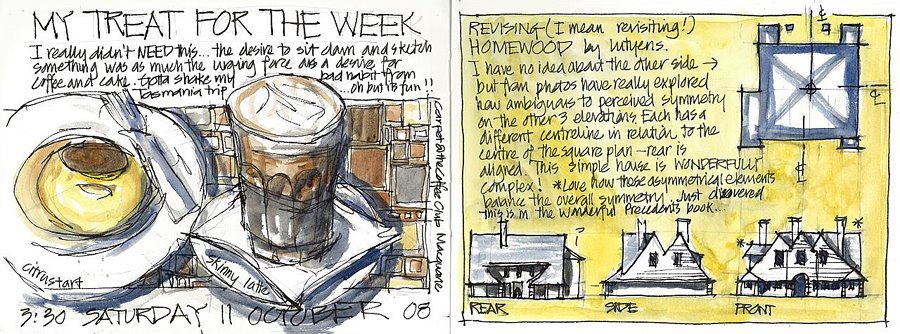 MY TREAT FOR THE WEEK
I really didn't NEED this... the desire to sit down and sketch
something was as much the urging force as a desire for
coffee and cake.. gotta shake my bad habit from
Tasmania trip ...oh but is fun!!
carpet @ the Coffee Club Macquarie
citrus tart
skinny latte
3:30 SATURDAY 11 OCTOBER 08
REVISING-(I mean revisiting!)
HOMEWOOD by Lutyens.
I have no idea about the other side →
but from photos have really explored
how ambiguous to perceived symmetry
on the other 3 elevations. Each has a
different centreline in relation to the
centre of the square plan - rear is
aligned. This simple house is WONDERFULLY
complex! *Love how these asymmetrical elements
balance the overall symmetry. Just discovered
this is in the wonderful Precedents book...
?
*
*
REAR
SIDE
FRONT